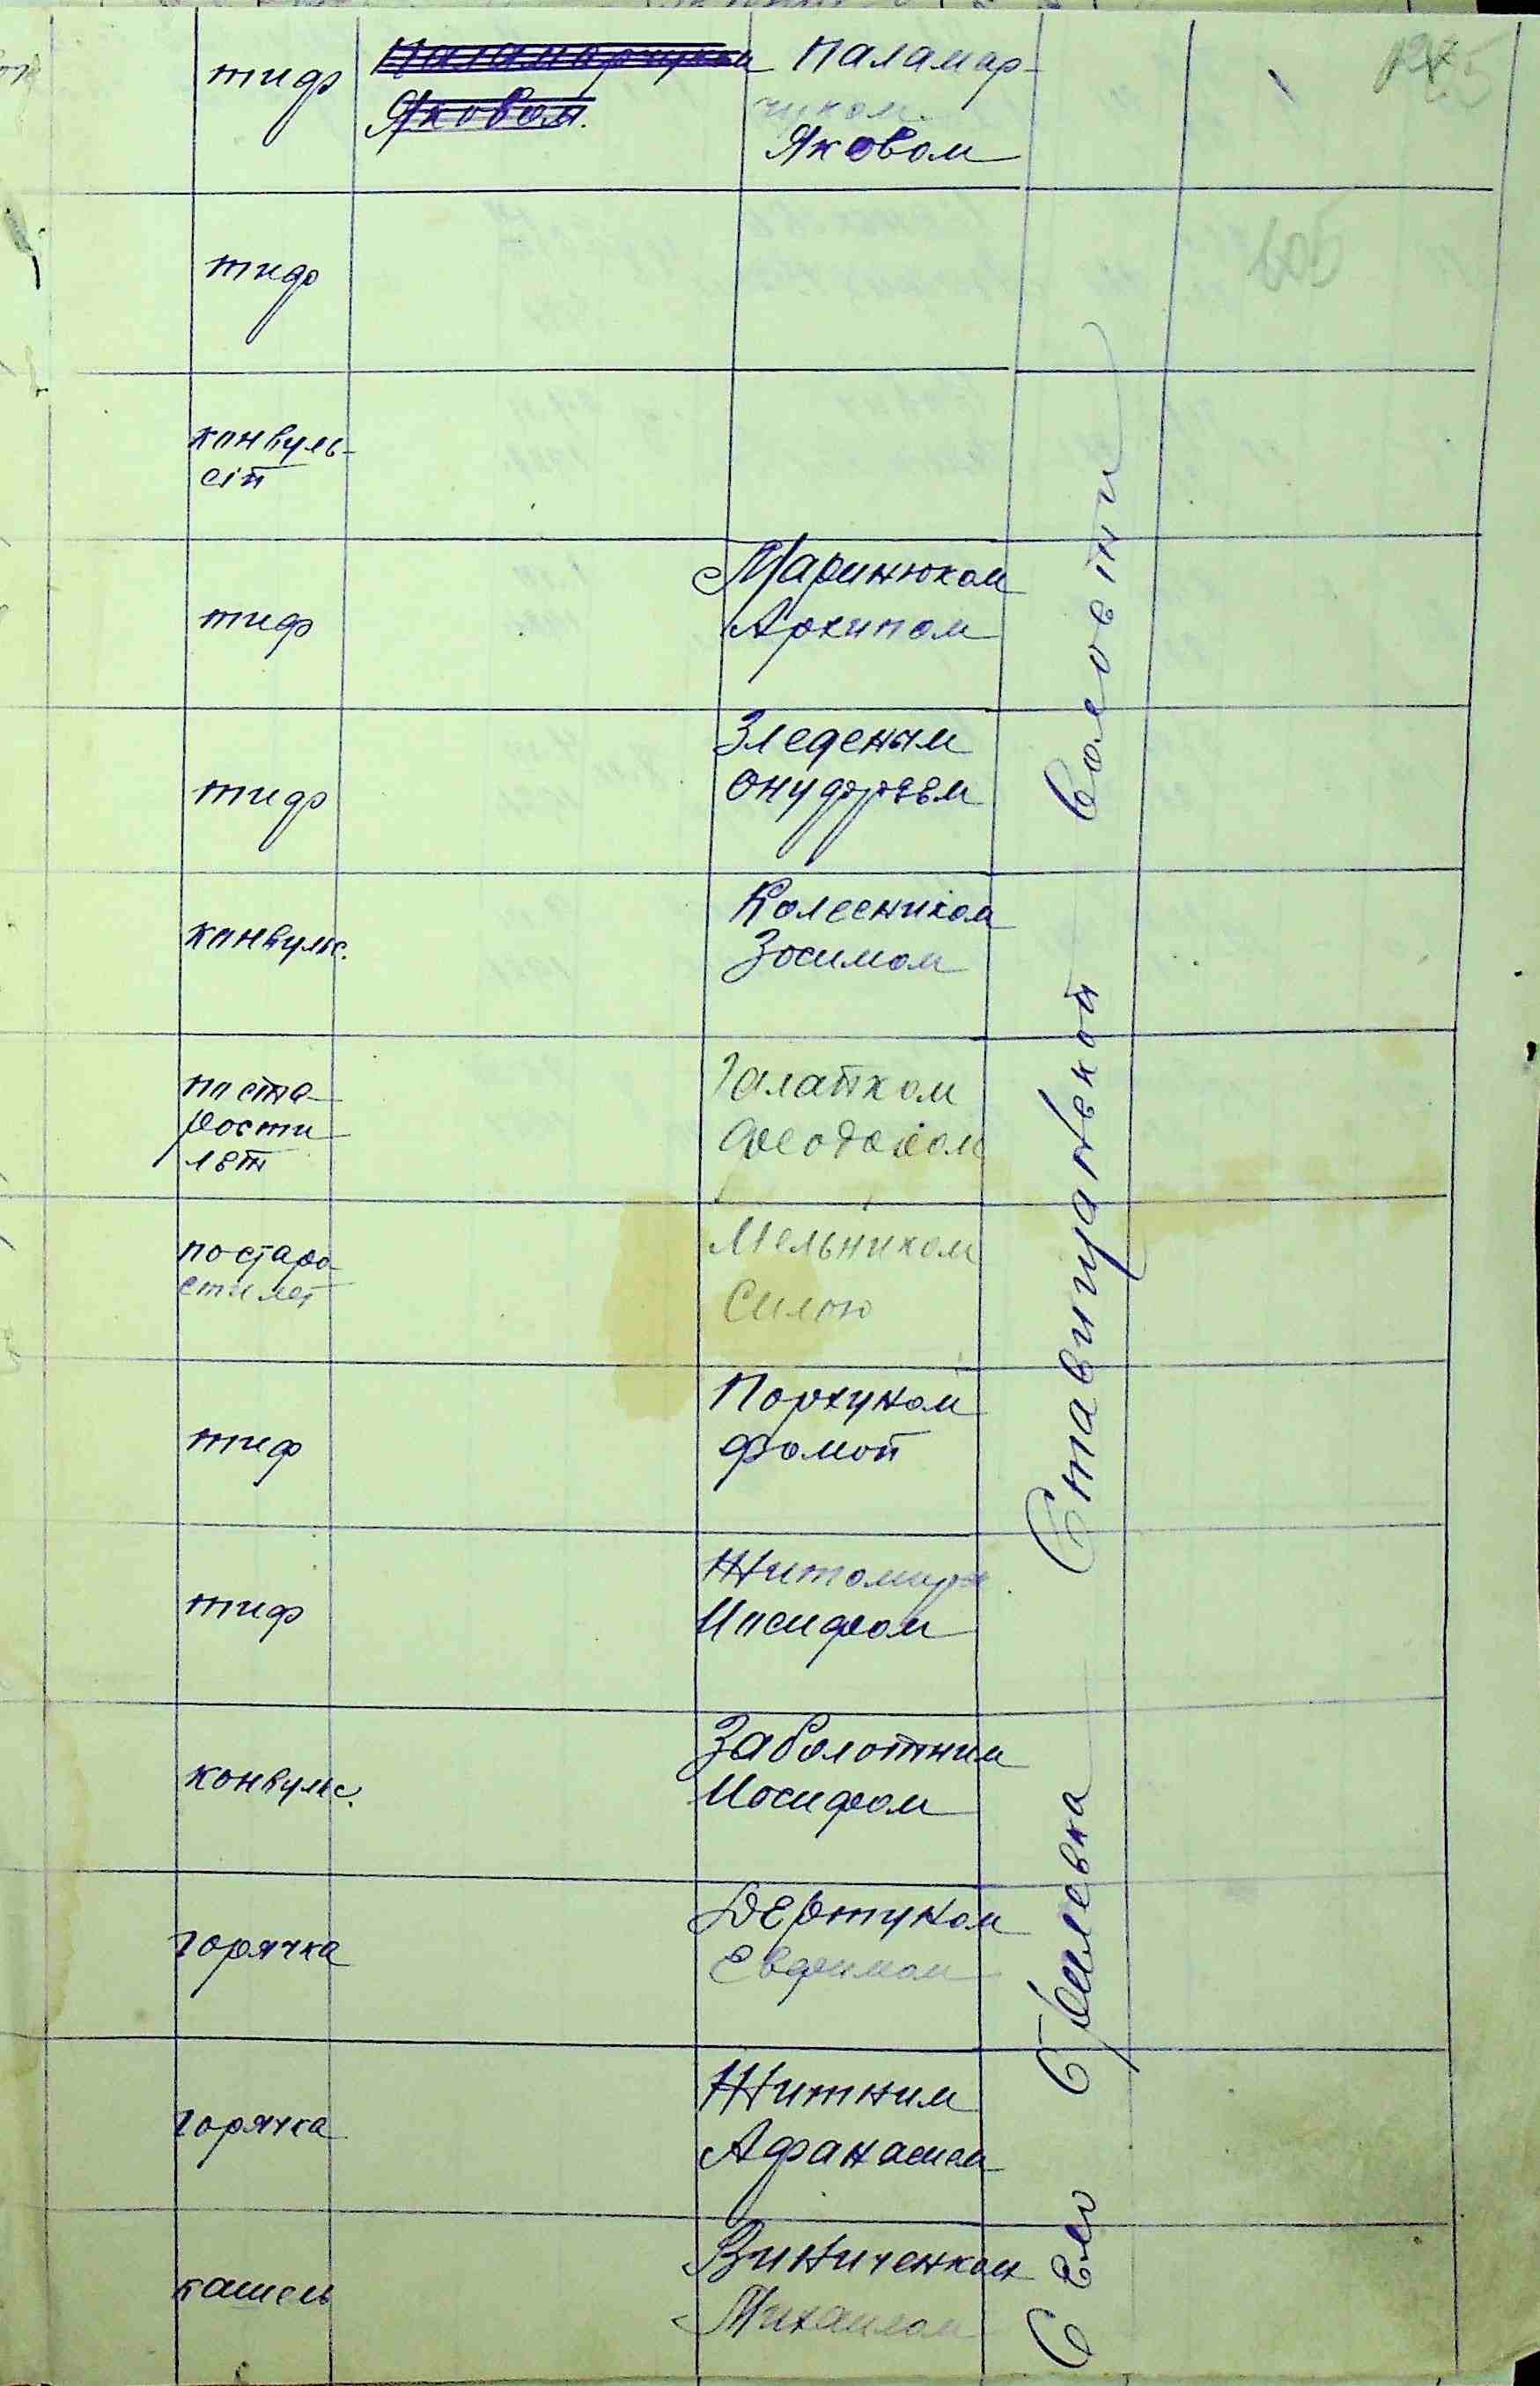 тиф Паламарчуком Паламар-
Яковом. чуком.
Яковом
тиф
605
конвуль-
сій
тиф Маринюком
Архипом
тиф Зледеным
Онуфрі­ем
конвульс. Колесником
Зосимом
по ста-
рости
лет
Галайком
Феодосіом
по старо-
сти лет
Мельником
Силою
тиф Порхуном
Фомой
тиф Житомирс
Иосифом
конвульс. Заболотним
Иосифом
горячка Дертуном
Евфимом
горячка Житним
Афанасием
кашель Виниченком
Михаилом
Село Брилевка Ставищанской волости